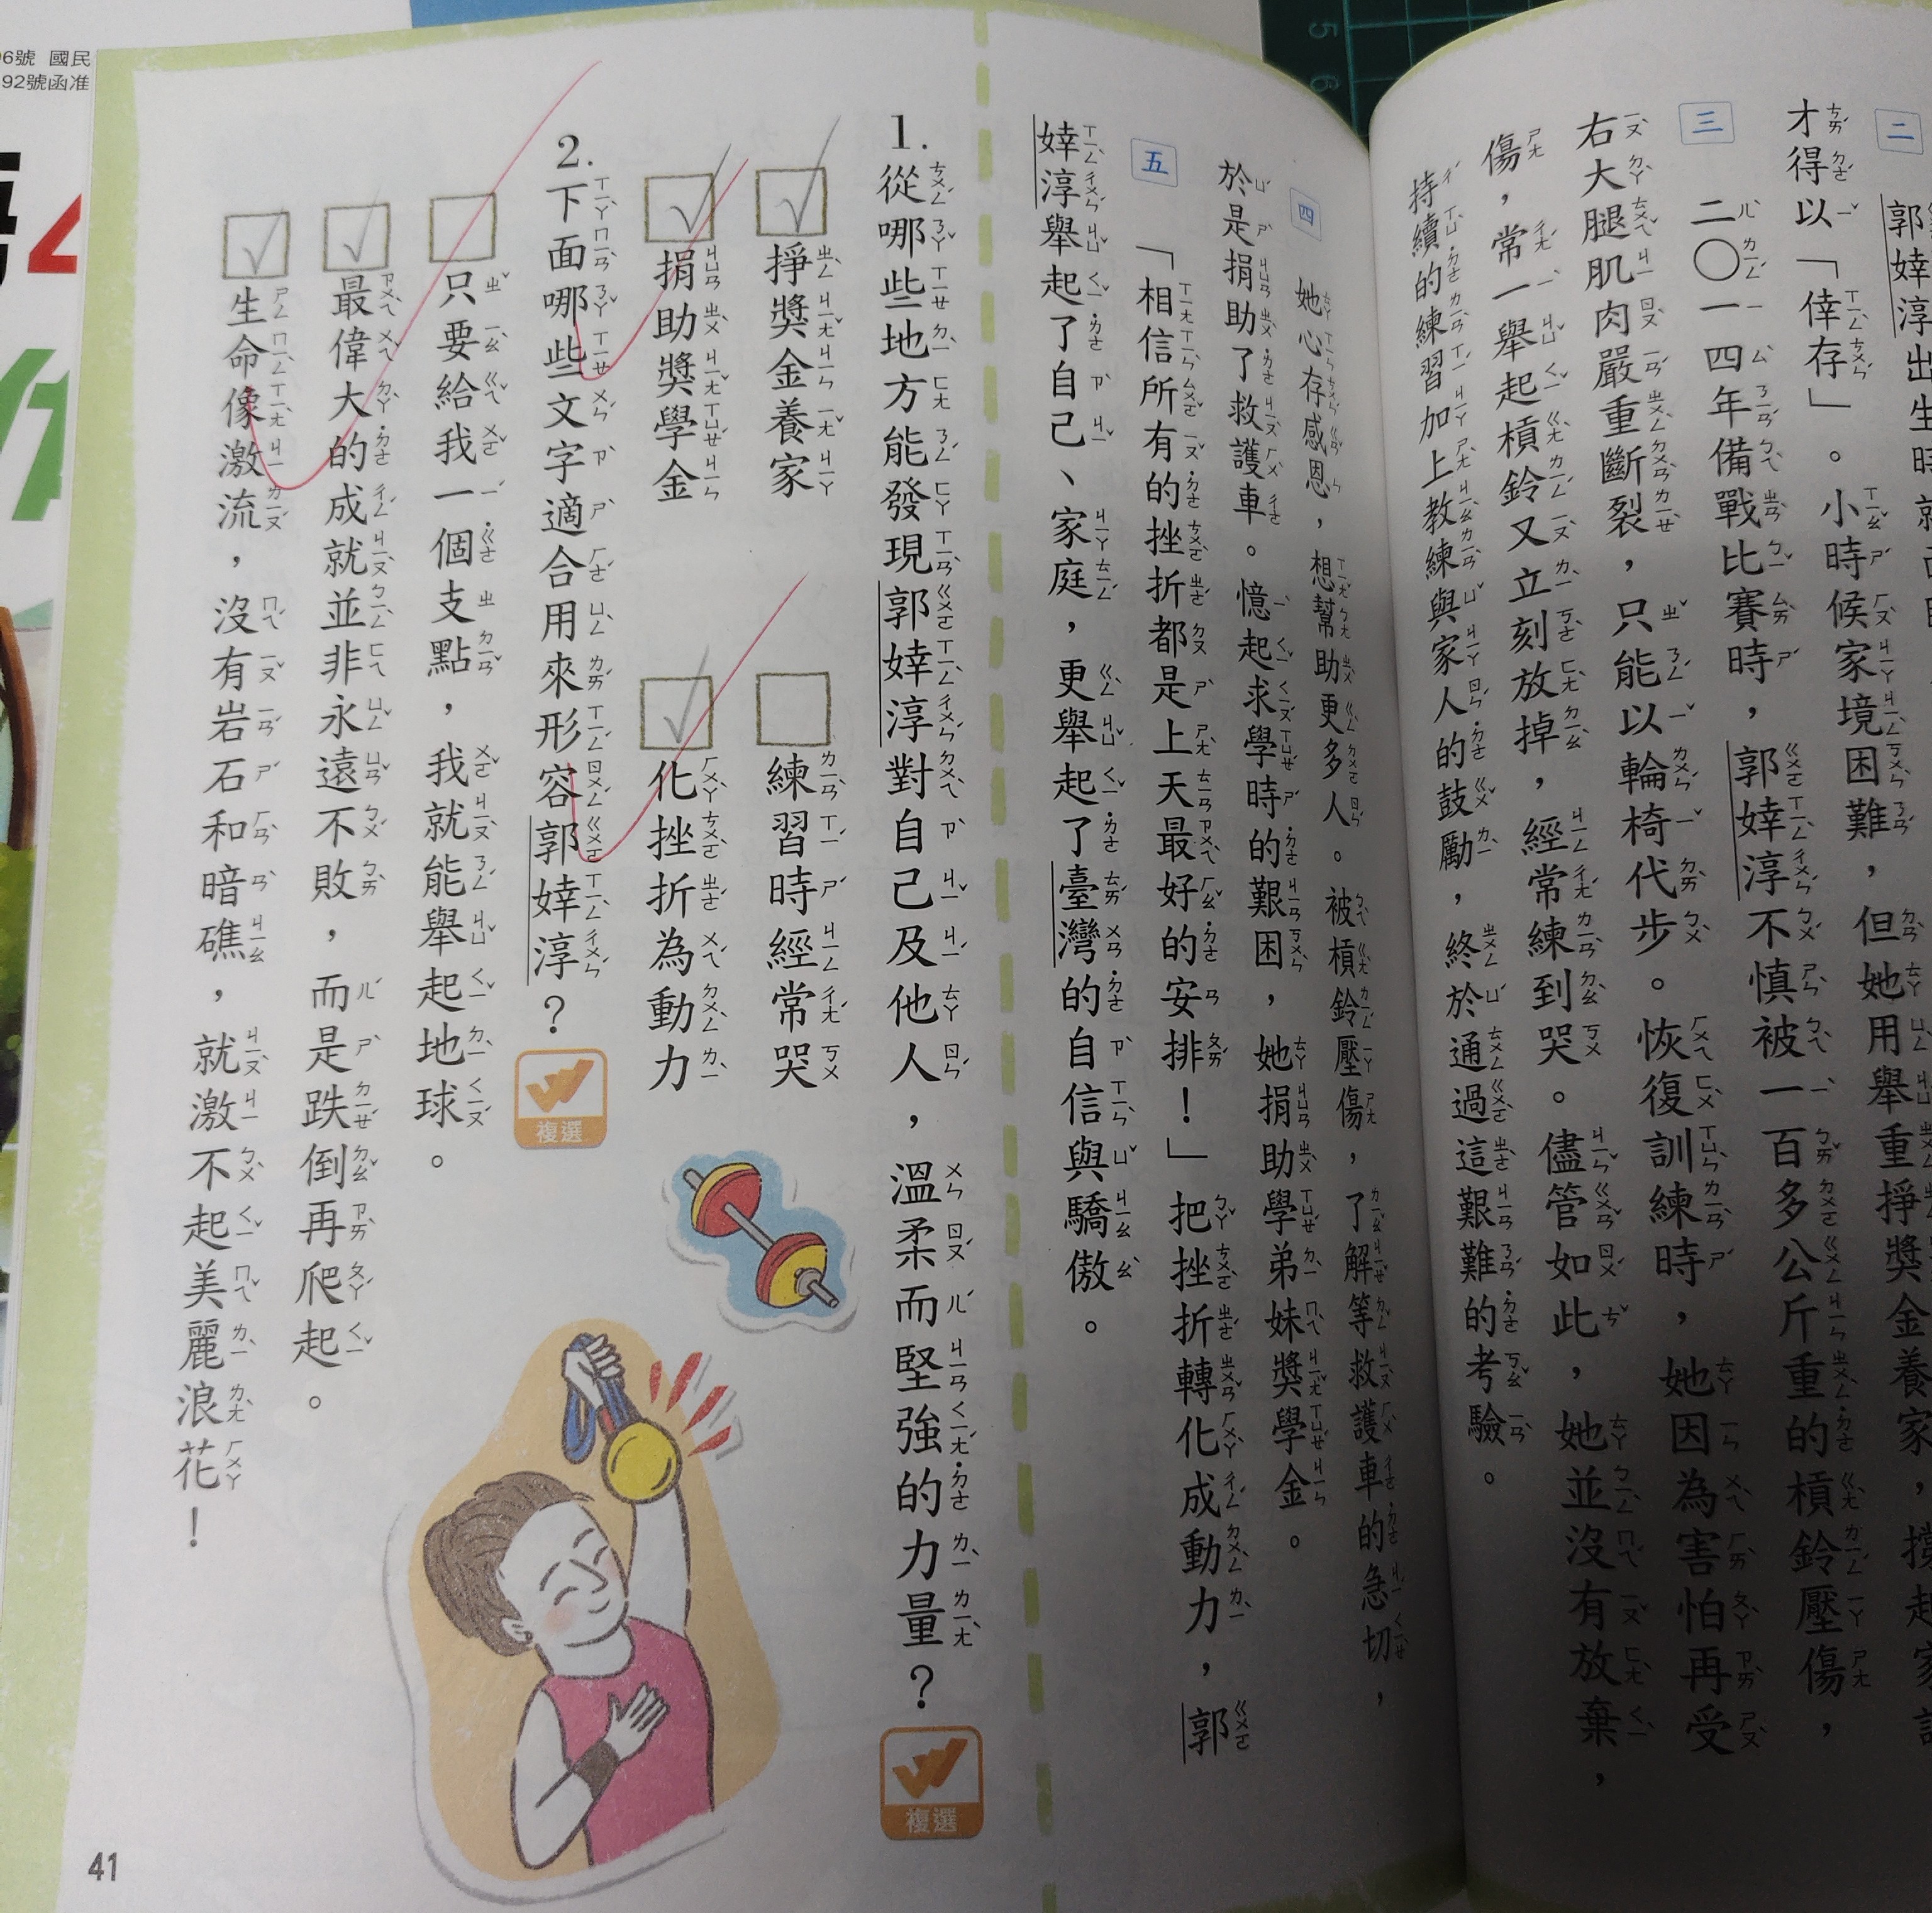 二
郭婞淳出生時就
才得以「倖存」。小時候家境困難,但她用舉重掙獎金養家,撐起家
三
二〇一四年備戰比賽時,郭婞淳不慎被一百多公斤重的槓鈴壓傷,
右大腿肌肉嚴重斷裂,只能以輪椅代步。恢復訓練時,她因為害怕再受
傷,常一舉起槓鈴又立刻放掉,經常練到哭。儘管如此,她並沒有放棄,
持續的練習加上教練與家人的鼓勵,終於通過這艱難的考驗。
四
她心存感恩,想幫助更多人。被槓鈴壓傷,了解等救護車的急切,
於是捐助了救護車。憶起求學時的艱困,她捐助學弟妹獎學金。
五
「相信所有的挫折都是上天最好的安排!」把挫折轉化成動力,郭
婞淳舉起了自己、家庭,更舉起了臺灣的自信與驕傲。
1.從哪些地方能發現郭婞淳對自己及他人,溫柔而堅強的力量?
複選
✓掙獎金養家
練習時經常哭
✓捐助獎學金
✓化挫折為動力
2.下面哪些文字適合用來形容郭婞淳?
複選
只要給我一個支點,我就能舉起地球。
✓最偉大的成就並非永遠不敗,而是跌倒再爬起。
✓生命像激流,沒有岩石和暗礁,就激不起美麗浪花!
41
6號 國民
92號函准
5
6